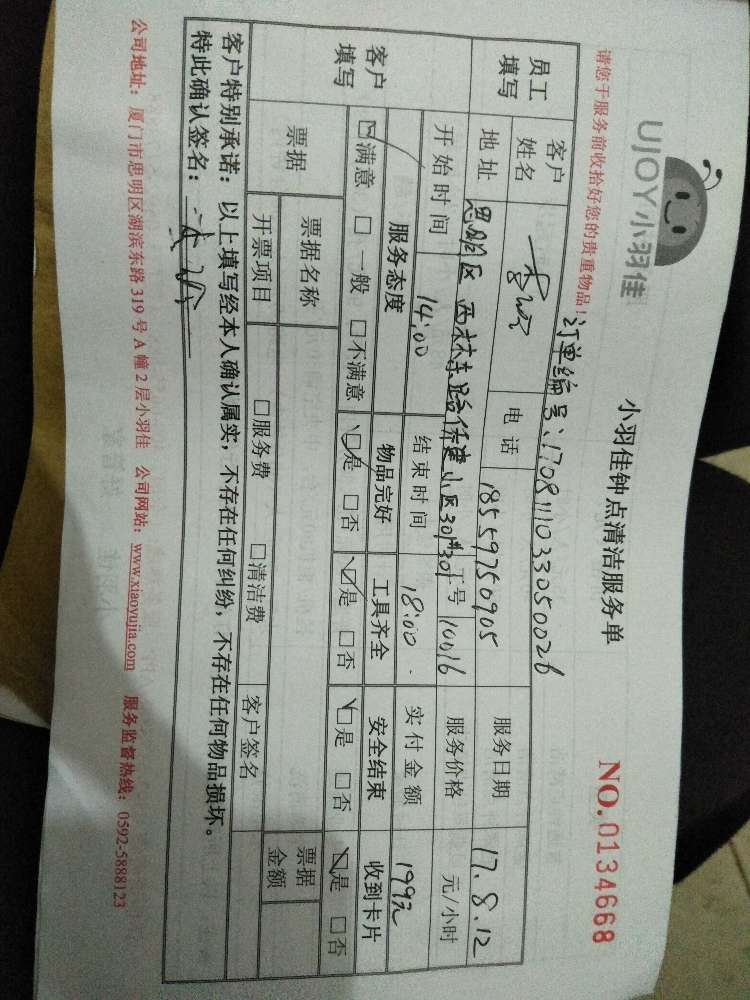 UJOY小羽佳
小羽佳钟点清洁服务单
NO.0134668
请您于服务前收拾好您的贵重物品!
订单编号:1708111033050026
员工填写 客户姓名 电话 18559750905 服务日期 17.8.12
地址 思明区 西林东路侨建小区30#301 工号 10016 服务价格 元/小时
客户填写 开始时间 14:00 结束时间 18:00 实付金额 199元
服务态度 物品完好 工具齐全 安全结束 收到卡片
满意 一般 不满意 是 否 是 否 是 否 是 否
票据 票据名称 票据金额
开票项目 服务费 清洁费 客户签名
客户特别承诺:以上填写经本人确认属实,不存在任何纠纷,不存在任何物品损坏。
特此确认签名:
公司地址:厦门市思明区湖滨东路319号A幢2层小羽佳 公司网站:www.xiaoyujia.com 服务监督热线:0592-5888123